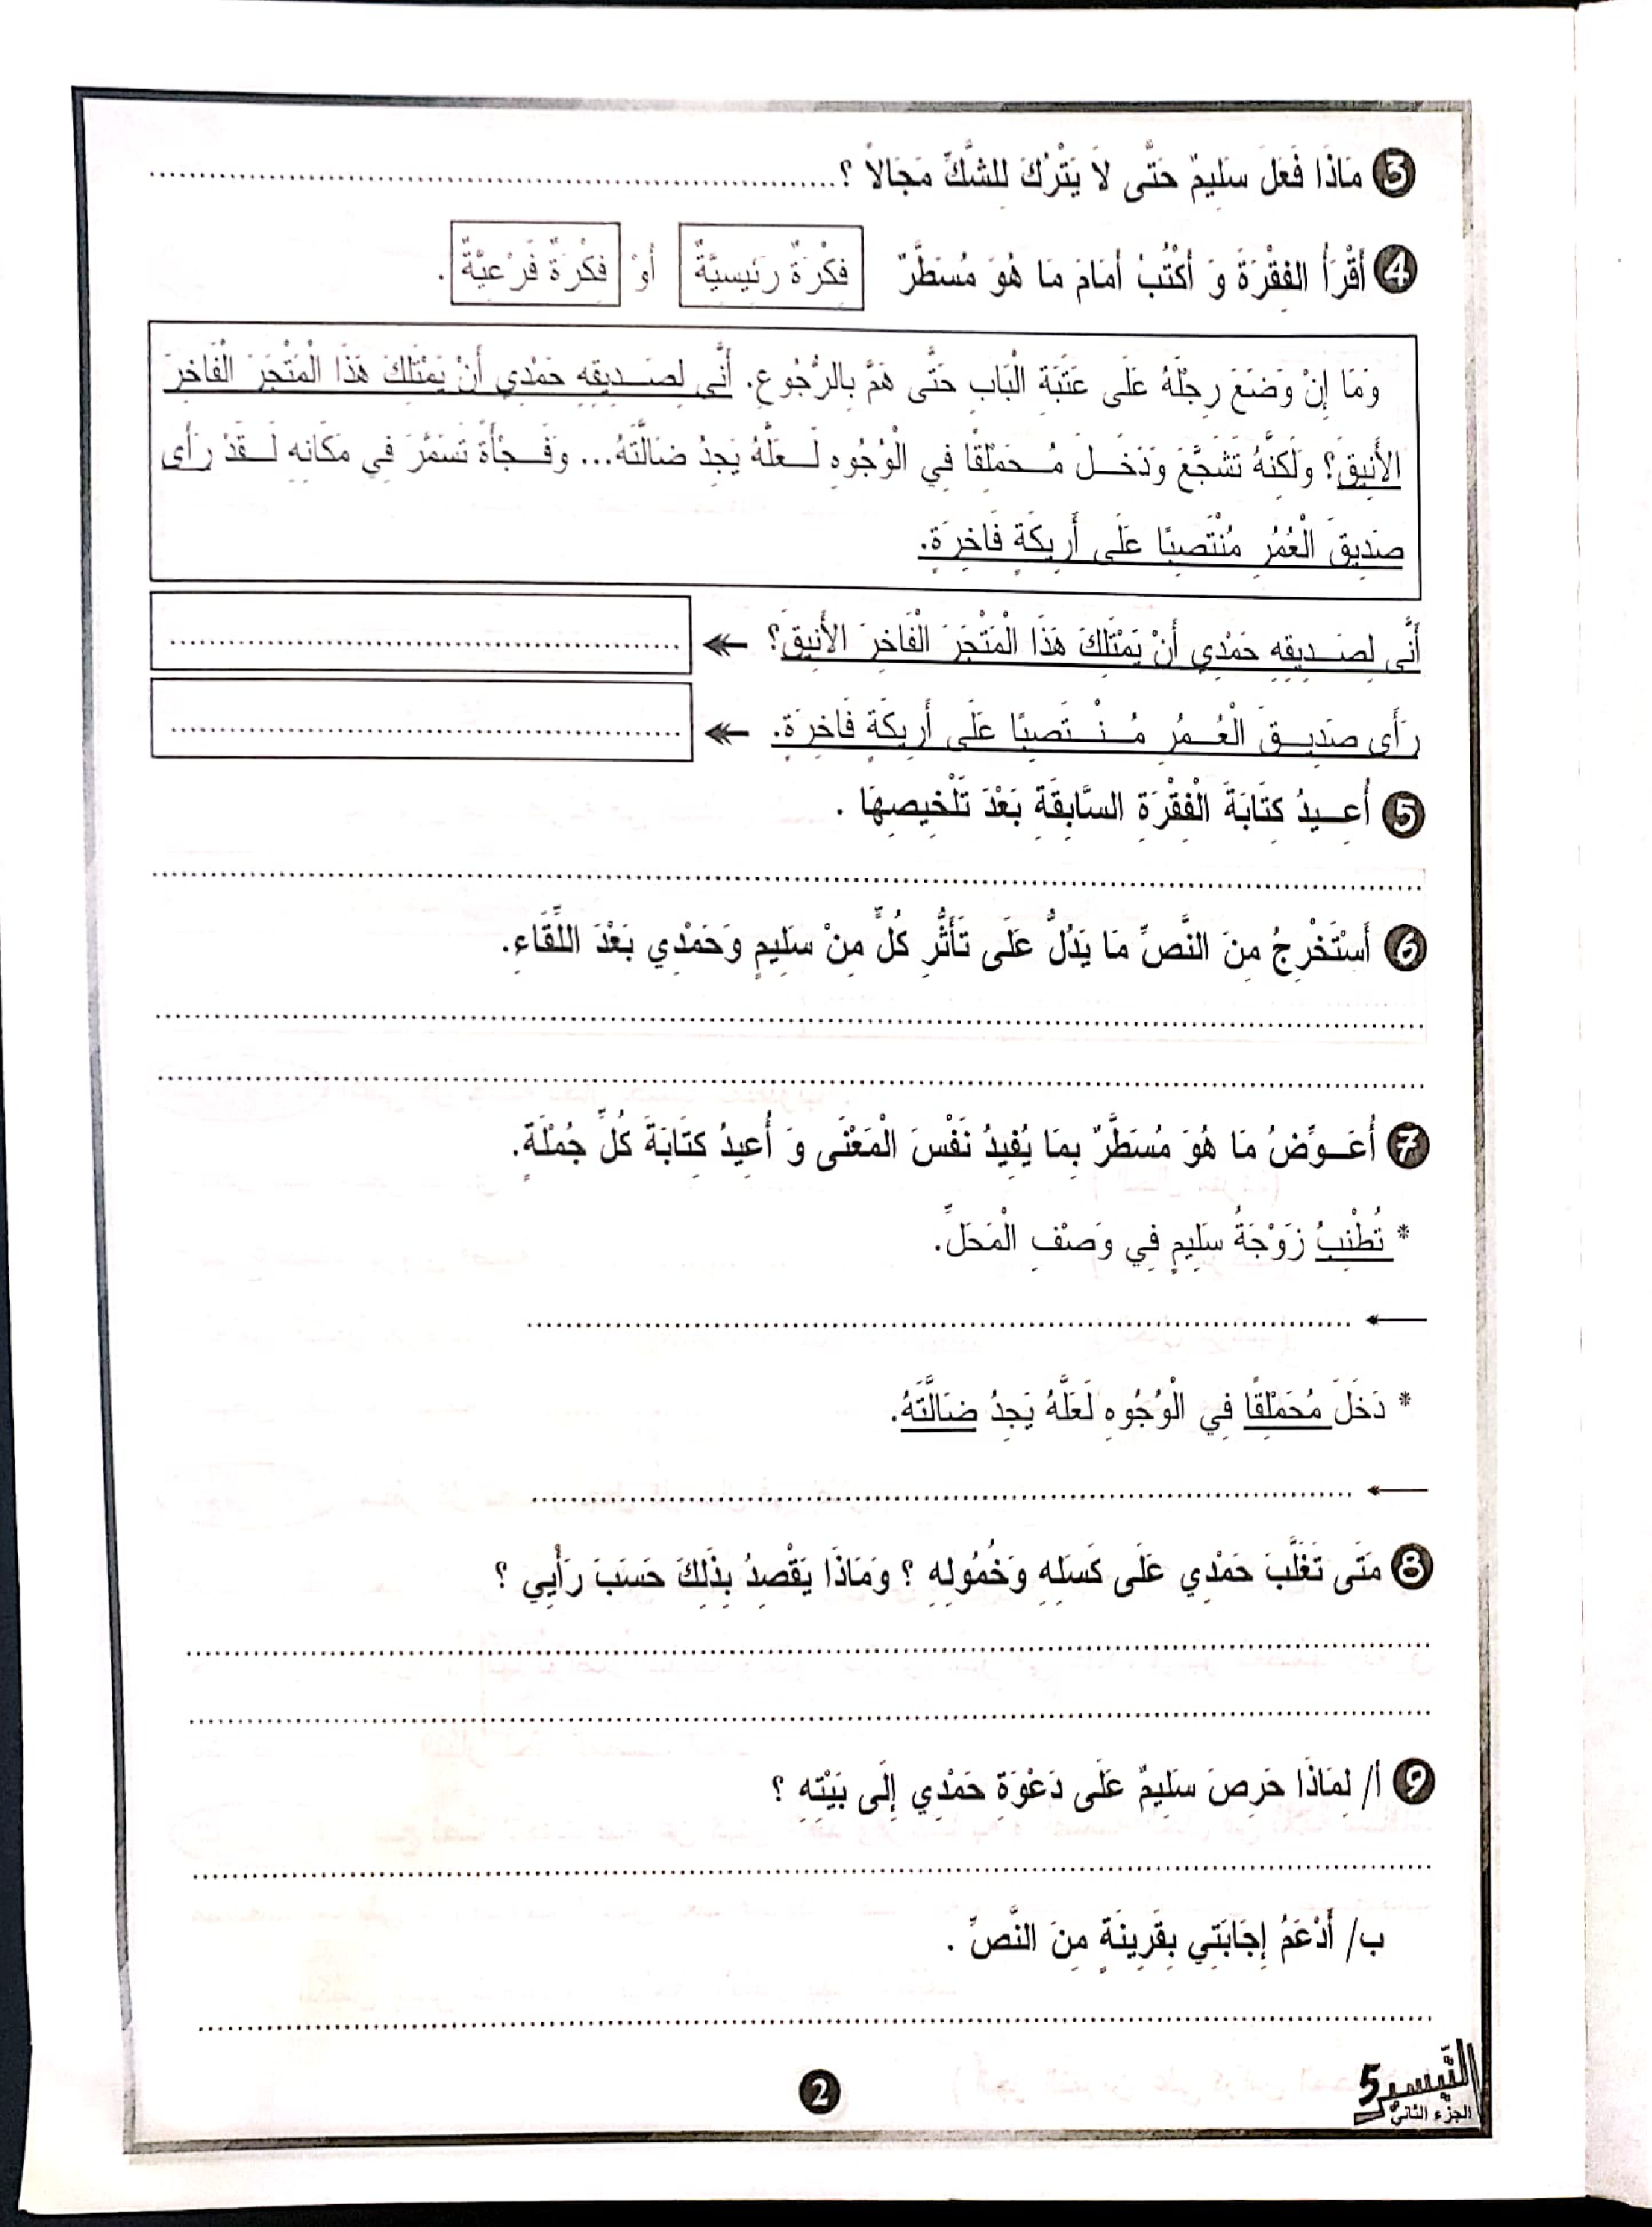 3 مَاذَا فَعَلَ سَلِيمٌ حَتَّى لاَ يَتْرُكَ لِلشَّكِّ مَجَالاً ؟
4 أَقْرَأُ الفِقْرَةَ وَ أَكْتُبُ أَمَامَ مَا هُوَ مُسَطَّرٌ فِكْرَةٌ رَئِيسِيَّةٌ أَوْ فِكْرَةٌ فَرْعِيَّةٌ .
وَمَا إِنْ وَضَعَ رِجْلَهُ عَلَى عَتَبَةِ الْبَابِ حَتَّى هَمَّ بِالرُّجُوعِ. أَنَّى لِصَدِيقِهِ حَمْدِي أَنْ يَمْتَلِكَ هَذَا الْمَتْجَرَ الْفَاخِرَ
الأَنِيقَ؟ وَلَكِنَّهُ تَشَجَّعَ وَدَخَلَ مُحَمْلِقًا فِي الْوُجُوهِ لَعَلَّهُ يَجِدُ ضَالَّتَهُ... وَفَجْأَةً تَسَمَّرَ فِي مَكَانِهِ لَقَدْ رَأَى
صَدِيقَ الْعُمُرِ مُنْتَصِبًا عَلَى أَرِيكَةٍ فَاخِرَةٍ.
أَنَّى لِصَدِيقِهِ حَمْدِي أَنْ يَمْتَلِكَ هَذَا الْمَتْجَرَ الْفَاخِرَ الأَنِيقَ؟
رَأَى صَدِيقَ الْعُمُرِ مُنْتَصِبًا عَلَى أَرِيكَةٍ فَاخِرَةٍ.
5 أُعِيدُ كِتَابَةَ الْفِقْرَةِ السَّابِقَةِ بَعْدَ تَلْخِيصِهَا .
6 أَسْتَخْرِجُ مِنَ النَّصِّ مَا يَدُلُّ عَلَى تَأَثُّرِ كُلٍّ مِنْ سَلِيمٍ وَحَمْدِي بَعْدَ اللِّقَاءِ.
7 أُعَوِّضُ مَا هُوَ مُسَطَّرٌ بِمَا يُفِيدُ نَفْسَ الْمَعْنَى وَ أُعِيدُ كِتَابَةَ كُلِّ جُمْلَةٍ.
* تُطْنِبُ زَوْجَةُ سَلِيمٍ فِي وَصْفِ الْمَحَلِّ.
* دَخَلَ مُحَمْلِقًا فِي الْوُجُوهِ لَعَلَّهُ يَجِدُ ضَالَّتَهُ.
8 مَتَى تَغَلَّبَ حَمْدِي عَلَى كَسَلِهِ وَخُمُولِهِ ؟ وَمَاذَا يَقْصِدُ بِذَلِكَ حَسَبَ رَأْيِي ؟
9 أ/ لِمَاذَا حَرِصَ سَلِيمٌ عَلَى دَعْوَةِ حَمْدِي إِلَى بَيْتِهِ ؟
ب/ أَدْعَمُ إِجَابَتِي بِقَرِينَةٍ مِنَ النَّصِّ .
التَّيْسِير 5
الجزء الثاني
2